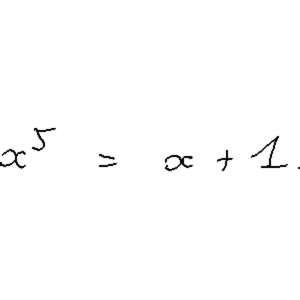 x⁵ = x + 1.